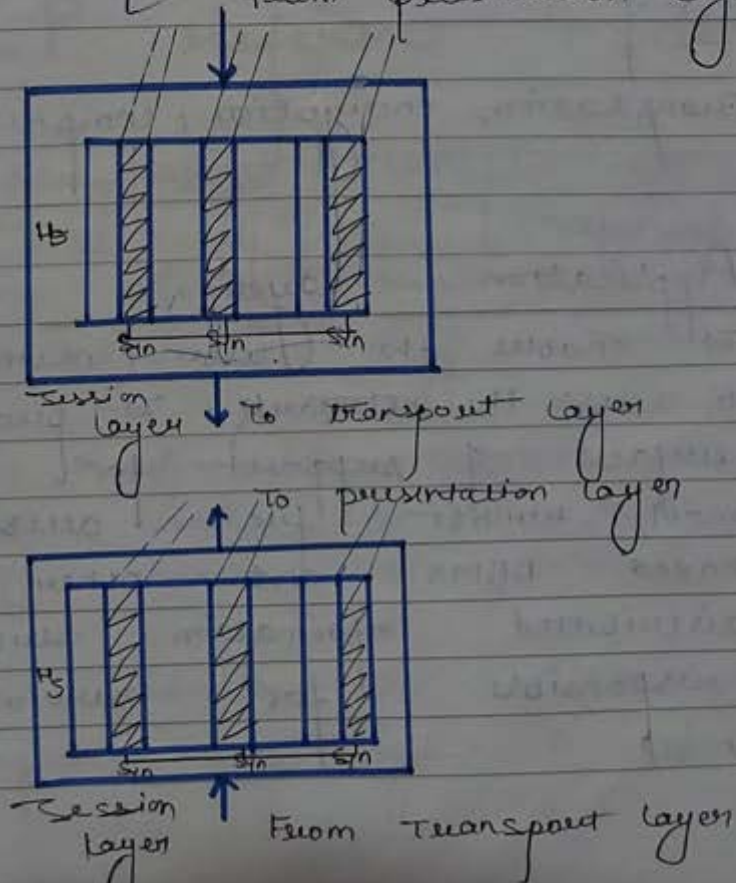 From presentation
H5
Syn Syn Syn
Session
Layer
To transport layer
To presentation layer
H5
Syn Syn Syn
Session
Layer
From Transport layer